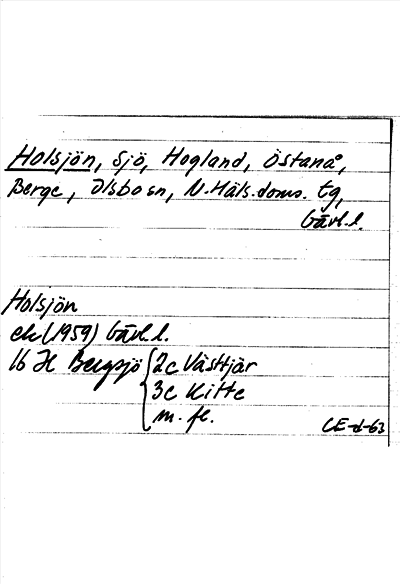 Holsjön, Sjö, Hogland, Östanå,
Berge, Olsbosn, N. Häls. doms. tg,
Gävl.l.
Holsjön
ek (1959) Gävl.l.
16 H Bergsjö 2c Västtjär
3c Kitte
m. fl.
CE-d-63